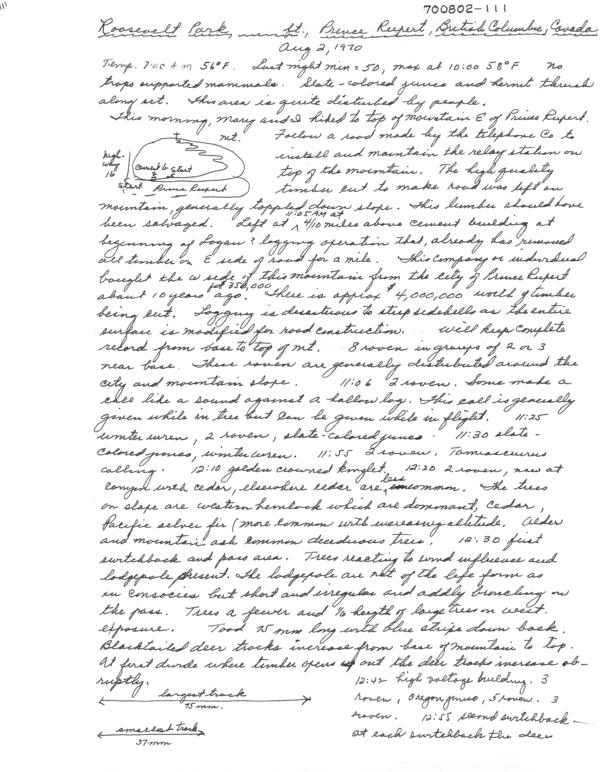 700802-111
Roosevelt Park, ft, Prince Rupert, British Columbia, Canada
Aug 2, 1970
Temp. 7:00 A.M 56°F. Last night min = 50, max at 10:00 58°F no
traps supported mammals. Slate-colored junco and hermit thrush
along rd. This area is quite disturbed by people.
This morning, Mary and I hiked to top of mountain E of Prince Rupert.
mt.
high-
way
16
cement b start
start Prince Rupert
Follow a road made by the telephone Co to
install and maintain the relay station on
top of the mountain. The high quality
timber cut to make road was left on
mountain, generally toppled down slope. This lumber should have
been salvaged. Left at 11:05 AM at 4/10 miles above cement building at
beginning of Logan? logging operation that already has removed
all timber on E side of road for a mile. This company or individual
bought the W side of this mountain from the city of Prince Rupert
about 10 years ago. for 350,000 There is approx $4,000,000 worth of timber
being cut. Logging is desentuous to steep sidehills as the entire
surface is modified for road construction. will keep complete
record from base to top of mt. 8 raven in groups of 2 or 3
near base. These raven are generally distributed around the
city and mountain slope. 11:06 2 raven. Some make a
call like a sound against a hollow log. This call is generally
given while in tree but can be given while in flight. 11:25
winter wren, 2 raven, slate-colored junco. 11:30 slate-
colored junco, winter wren. 11:55 2 raven. Tamiasciurus
calling. 12:10 golden crowned kinglet, 12:20 2 raven, now at
canyon with cedar, elsewhere cedar are less common. The trees
on slope are western hemlock which are dominant, cedar,
Pacific silver fir (more common with increasing altitude. Alder
and mountain ash common deciduous trees. 12:30 first
switchback and pass area. Trees reacting to wind influence and
lodgepole present. The lodgepole are not of the life form as
in consocies but short and irregular and oddly branching on
the pass. Trees a fewer and 1/2 heigth of large trees on west
exposure. Toad 75 mm long with blue stripe down back.
Blacktailed deer tracks increase from base of mountain to top.
At first divide where timber opens up out the deer tracks increase ab-
ruptly.
largest track
75 mm.
smallest track
37 mm
12:42 high voltage building. 3
raven, Oregon junco, 5 raven. 3
raven. 12:55 second switchback -
at each switchback the deer